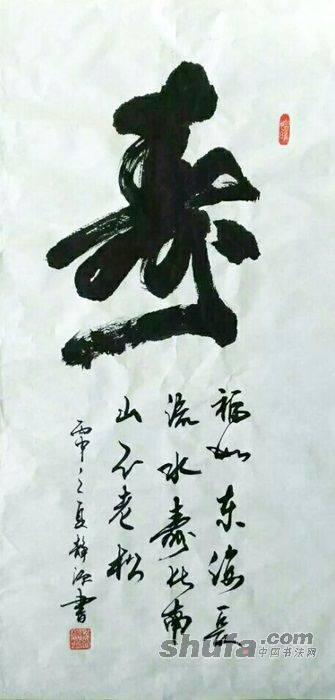 寿
福如东海长
流水寿比南
山不老松
丙申之夏静书
shufa.com
中国书法网